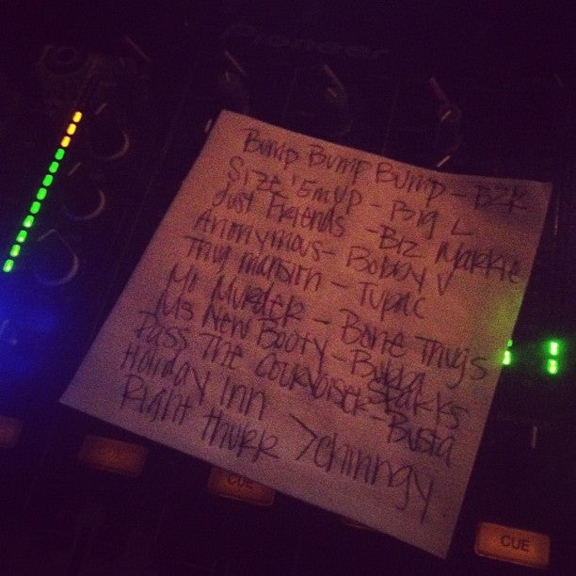 Pioneer
Bump Bump Bump - B2K
Size 'Em Up - Big L
Just Friends - Biz Markie
Anonymous - Bobby V
Thug Mansion - Tupac
Mr Murder - Bone Thugs
Ms New Booty - Bubba Sparkks
Pass The Courvoiseir - Busta
Holiday Inn
Right Thurr > Chinngy
CUE
CUE